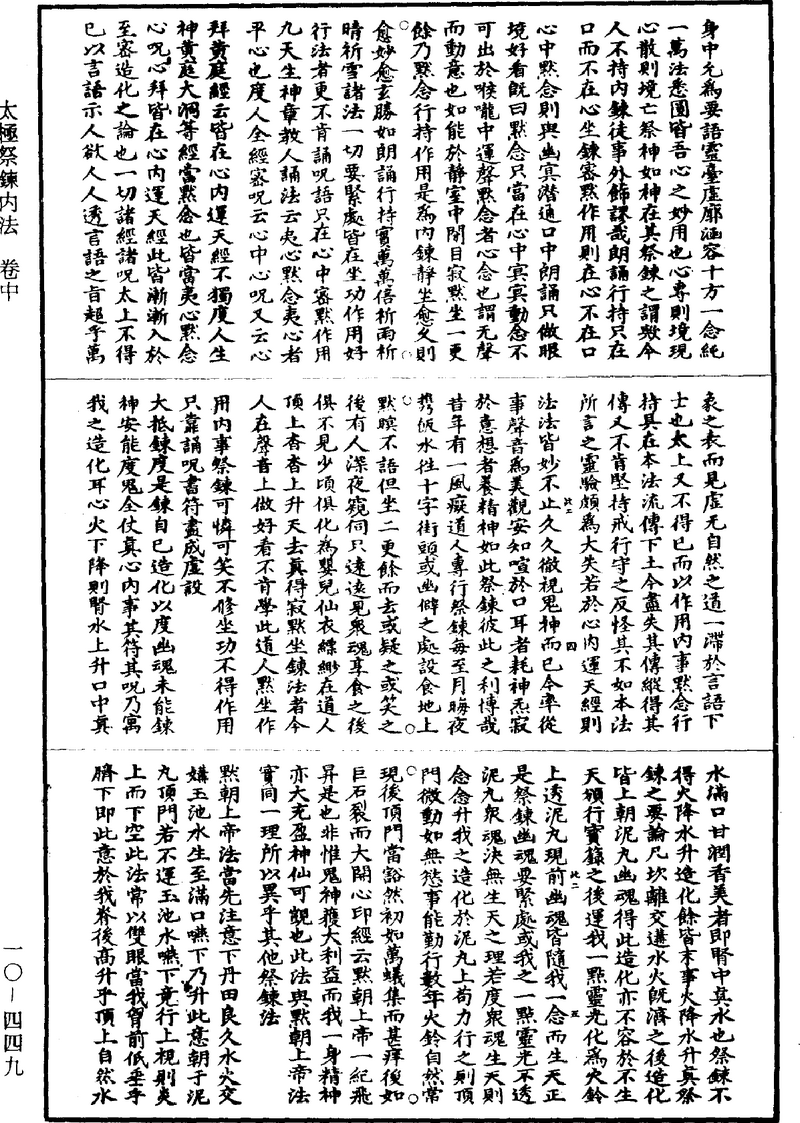 身中允為要語靈臺虛廓涵容十方一念純
一萬法悉圓皆吾心之妙用也心專則境現
心散則境亡祭神如神在其祭鍊之謂歟今
人不持內鍊徒事外飾謬哉朗誦行持只在
口而不在心坐鍊審默作用則在心不在口
心中默念則與幽冥潛通口中朗誦只做眼
境好看既曰默念只當在心中冥冥動念不
可出於喉嚨中運聲默念者心念也謂无聲
而動意也如能於靜室中閉目寂默坐一更
餘乃默念行持作用是為內鍊靜坐愈久則
愈妙愈玄勝如朗誦行持實萬萬倍祈雨祈
晴祈雪諸法一切要緊處皆在坐功作用好
行法者更不肯誦呪語只在心中審默作用
九天生神章教人誦法云夷心默念夷心者
平心也度人全經審呪云心中心呪又云心
拜黃庭經云皆在心內運天經不獨度人生
神黃庭大洞等經當默念也皆當夷心默念
心呪心拜皆在心內運天經此皆漸漸入於
至審造化之論也一切諸經諸呪太上不得
已以言語示人欲人人透言語之旨超乎萬
象之表而見虛无自然之道一滯於言語下
士也太上又不得已而以作用內事默念行
持具在本法流傳下土今盡失其傳縱得其
傳又不肯堅持戒行守之反怪其不如本法
所言之靈驗頗為大失若於心內運天經則
法法皆妙不止久久徹視鬼神而已今率從
事聲音為美觀安知喧於口耳者耗神炁寂
於意想者養精神如此祭鍊彼此之利博哉
昔年有一風癡道人專行祭鍊每至月晦夜
携飯水往十字街頭或幽僻之處設食地上
默瞑不語但坐二更餘而去或疑之或笑之
後有人深夜窺伺只遠遠見眾魂享食之後
俱不見少頃俱化為嬰兒仙衣縹緲在道人
頂上杳杳上升天去真得寂默坐鍊法者今
人在聲音上做好看不肯學此道人默坐作
用內事祭鍊可憐可笑不修坐功不得作用
只靠誦呪書符盡成虛設
大抵鍊度是鍊自己造化以度幽魂未能鍊
神安能度鬼全仗真心內事其符其呪乃寓
我之造化耳心火下降則腎水上升口中真
水滿口甘潤香美者即腎中真水也祭鍊不
得火降水升造化餘皆末事火降水升真祭
鍊之要論凡坎離交遘水火既濟之後造化
皆上朝泥丸幽魂得此造化亦不容於不生
天頒行寶籙之後運我一點靈光化為火鈴
上透泥丸現前幽魂皆隨我一念而生天正
是祭鍊幽魂要緊處或我之一點靈光不透
泥丸眾魂決無生天之理若度眾魂生天則
念念升我之造化於泥丸上苟力行之則頂
門微動如無愁事能勤行數年火鈴自然常
現後頂門當豁然初如萬蟻集而甚痒後如
巨石裂而大開心印經云默朝上帝一紀飛
昇是也非惟鬼神獲大利益而我一身精神
亦大充盈神仙可覬也此法與默朝上帝法
實同一理所以異乎其他祭鍊法
默朝上帝法當先注意下丹田良久水火交
媾玉池水生至滿口嚥下乃升此意朝于泥
丸頂門若不運玉池水嚥下竟行上視則炎
上而下空此法常以雙眼當我胷前低垂乎
臍下即此意於我脊後高升乎頂上自然水
太極祭鍊內法 卷中
一〇—四四九